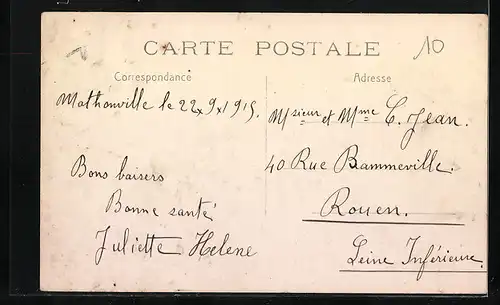 CARTE POSTALE
10
Correspondance
Adresse
Mathonville le 22x9x1915.
Msieur et Mme C. Jean.
40 Rue Bammeville.
Rouen.
Seine Inférieure.
Bons baisers
Bonne santé
Juliette Helene